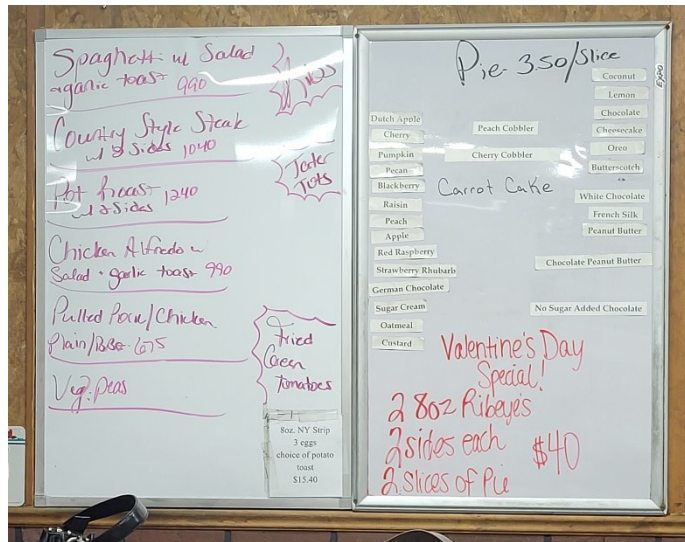 Spaghetti w/ Salad
+garlic toast 990
Country Style Steak
w/ 2 Sides 1040
Pot Roast 1240
w/ 2 Sides
Chicken Alfredo w
Salad + garlic toast 990
Pulled Pork/Chicken
Plain/BBQ- 675
Veg: Peas
Tater
Tots
Fried
Green
Tomatoes
8oz. NY Strip
3 eggs
choice of potato
toast
$15.40
Pie- 3.50/Slice
Dutch Apple
Cherry
Pumpkin
Pecan
Blackberry
Raisin
Peach
Apple
Red Raspberry
Strawberry Rhubarb
German Chocolate
Sugar Cream
Oatmeal
Custard
Peach Cobbler
Cherry Cobbler
Carrot Cake
Coconut
Lemon
Chocolate
Cheesecake
Oreo
Butterscotch
White Chocolate
French Silk
Peanut Butter
Chocolate Peanut Butter
No Sugar Added Chocolate
EXPO
Valentine's Day
Special!
2 8oz Ribeye's
2 sides each $40
2 slices of Pie